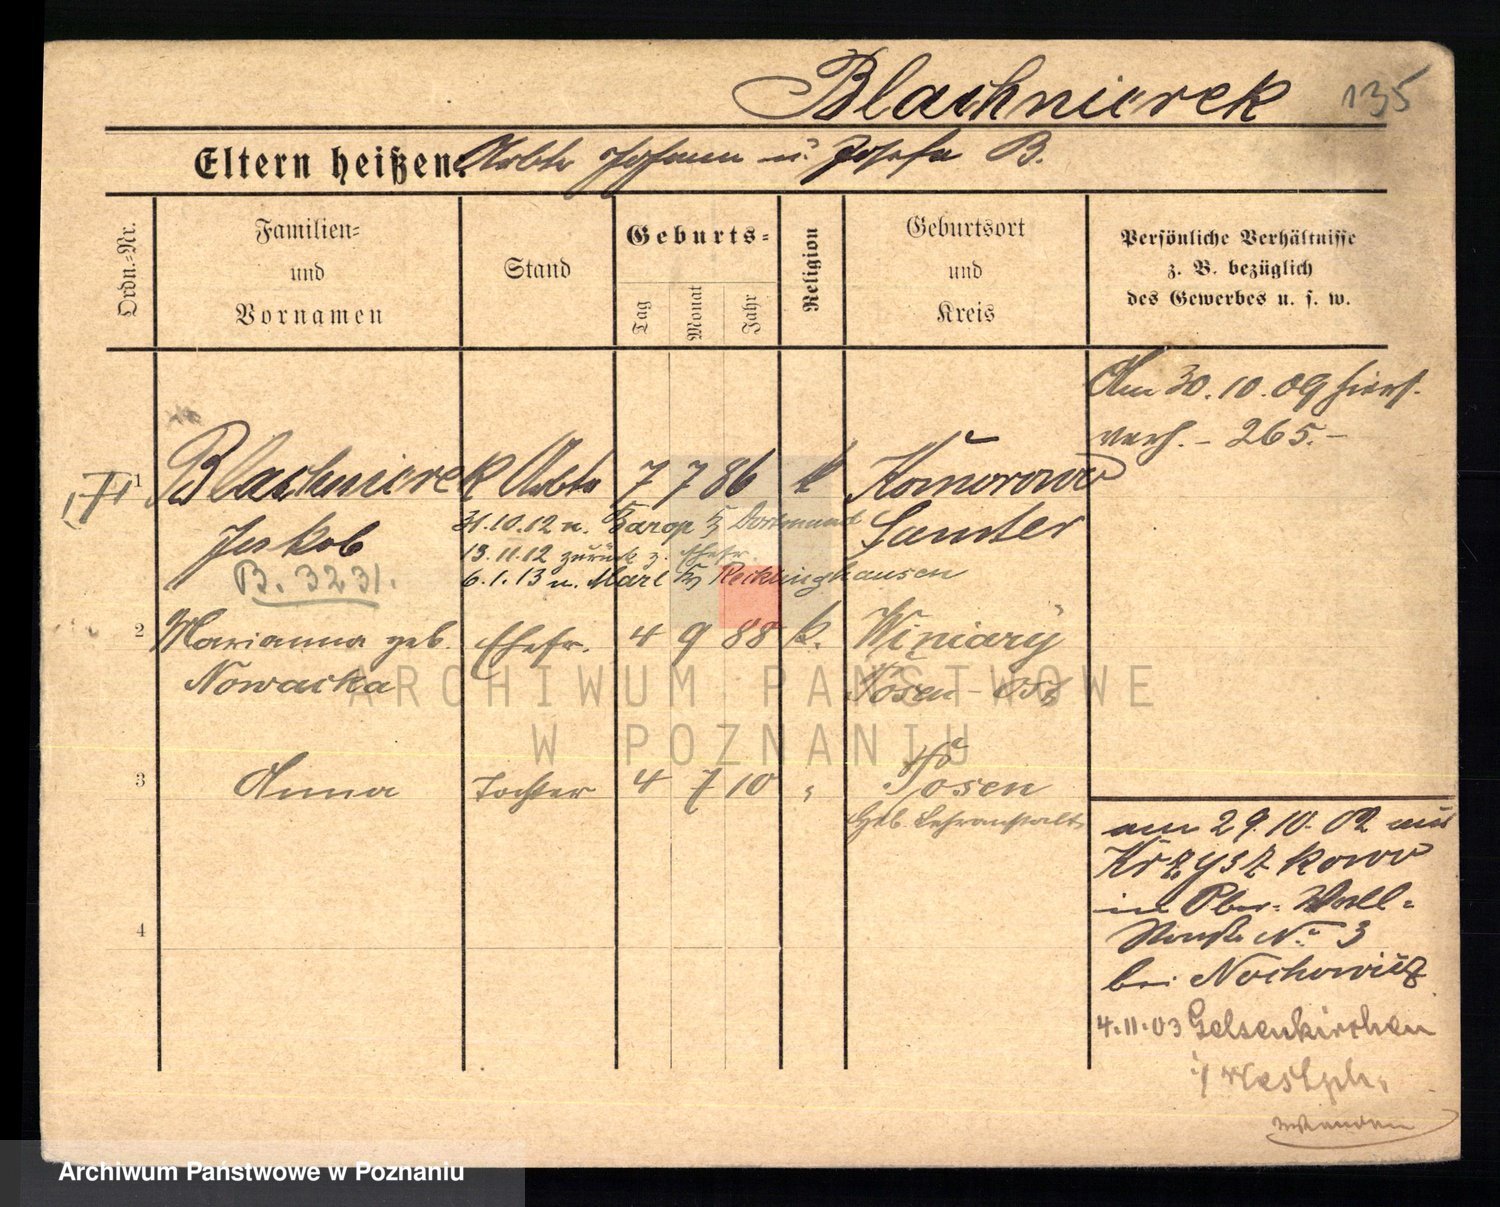 Blachnierek 135
Eltern heißen: Arbtr Johann u. Josefa B.
Ordn.-Nr.
Familien-
und
Vornamen
Stand
Geburts-
Tag
Monat
Jahr
Religion
Geburtsort
und
Kreis
Persönliche Verhältnisse
z. B. bezüglich
des Gewerbes u. s. w.
Am 30.10.09 hiers.
verh. - 265.-
1 Blachnierek Arbtr 7 7 86 k Komorowo
Jakob
Samter
31.10.12 n. Barop Kr Dortmund
13.11.12 zurück z. Ehefr.
6.1.13 n. Marl Kr Recklinghausen
B. 3231.
2 Marianna geb. Ehefr. 4 9 88 k. Winiary
Nowacka
Posen-Ost
3 Anna Tochter 4 7 10 " Posen
Geb. Lehranstalt
4
am 29.10.02 aus
Krzyszkowo
in Ober-Wall-
No 3
bei Nochowicz
4.11.03 Gelsenkirchen
i/ Westph.
ARCHIWUM PAŃSTWOWE
W POZNANIU
Archiwum Państwowe w Poznaniu